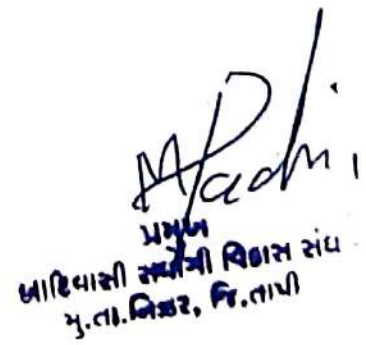 પ્રમુખ
આદિવાસી સર્વાંગી વિકાસ સંઘ
મુ.તા.નિઝર, જિ.તાપી